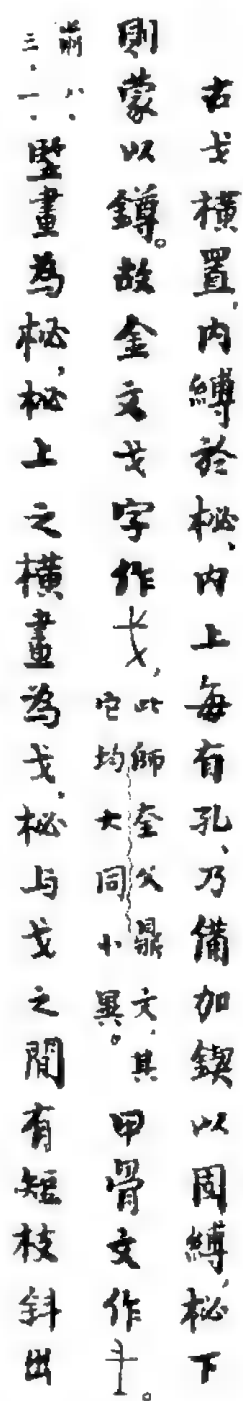 古戈橫置，內縛於柲，內上每有孔，乃備加鍥以固縛，柲下
則蒙以鐏。故金文戈字作，此師奎父鼎文，其它均大同小異。甲骨文作。
前八、三、一、豎畫為柲，柲上之橫畫為戈，柲与戈之間有短枝斜出